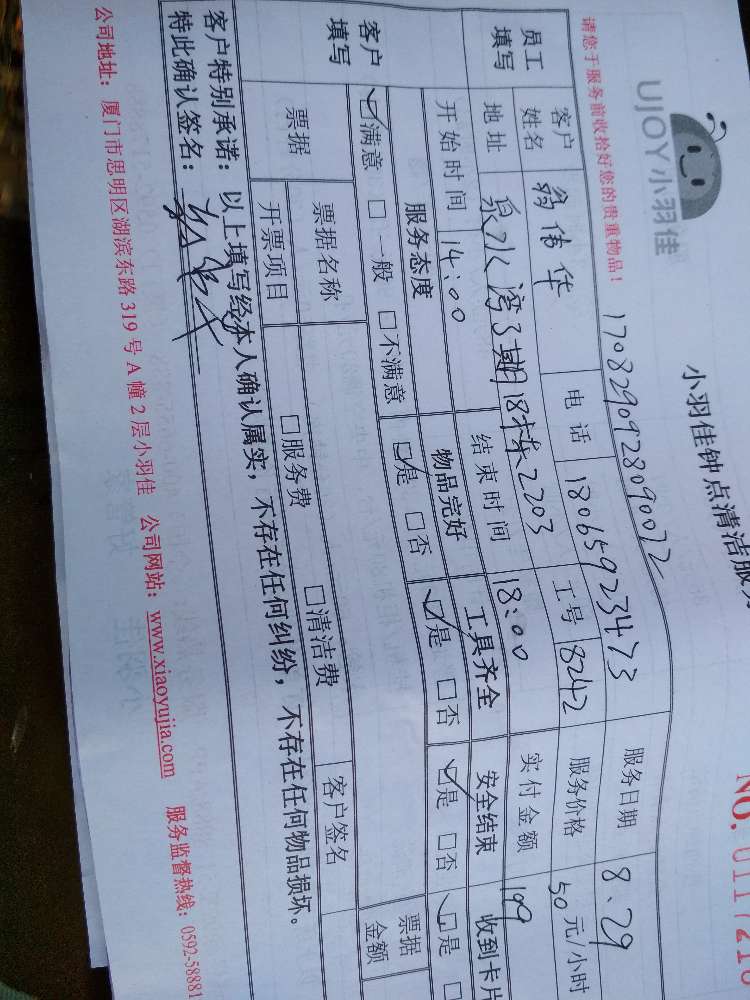 UJOY小羽佳
小羽佳钟点清洁服务
NO.
请您于服务前收拾好您的贵重物品！
17082909280900
员工填写
客户姓名 翁伟华 电话 18065923473 服务日期 8.29
地址 泉水湾3期18栋2203 工号 8242 服务价格 50元/小时
开始时间 14:00 结束时间 18:00 实付金额 199
客户填写
服务态度 物品完好 工具齐全 安全结束 收到卡片
☑满意 □一般 □不满意 ☑是 □否 ☑是 □否 ☑是 □否 ☑是
票据 票据名称 客户签名 票据金额
开票项目 □服务费 □清洁费
客户特别承诺：以上填写经本人确认属实，不存在任何纠纷，不存在任何物品损坏。
特此确认签名：
公司地址：厦门市思明区湖滨东路319号A幢2层小羽佳 公司网站：www.xiaoyujia.com 服务监督热线：0592-58881